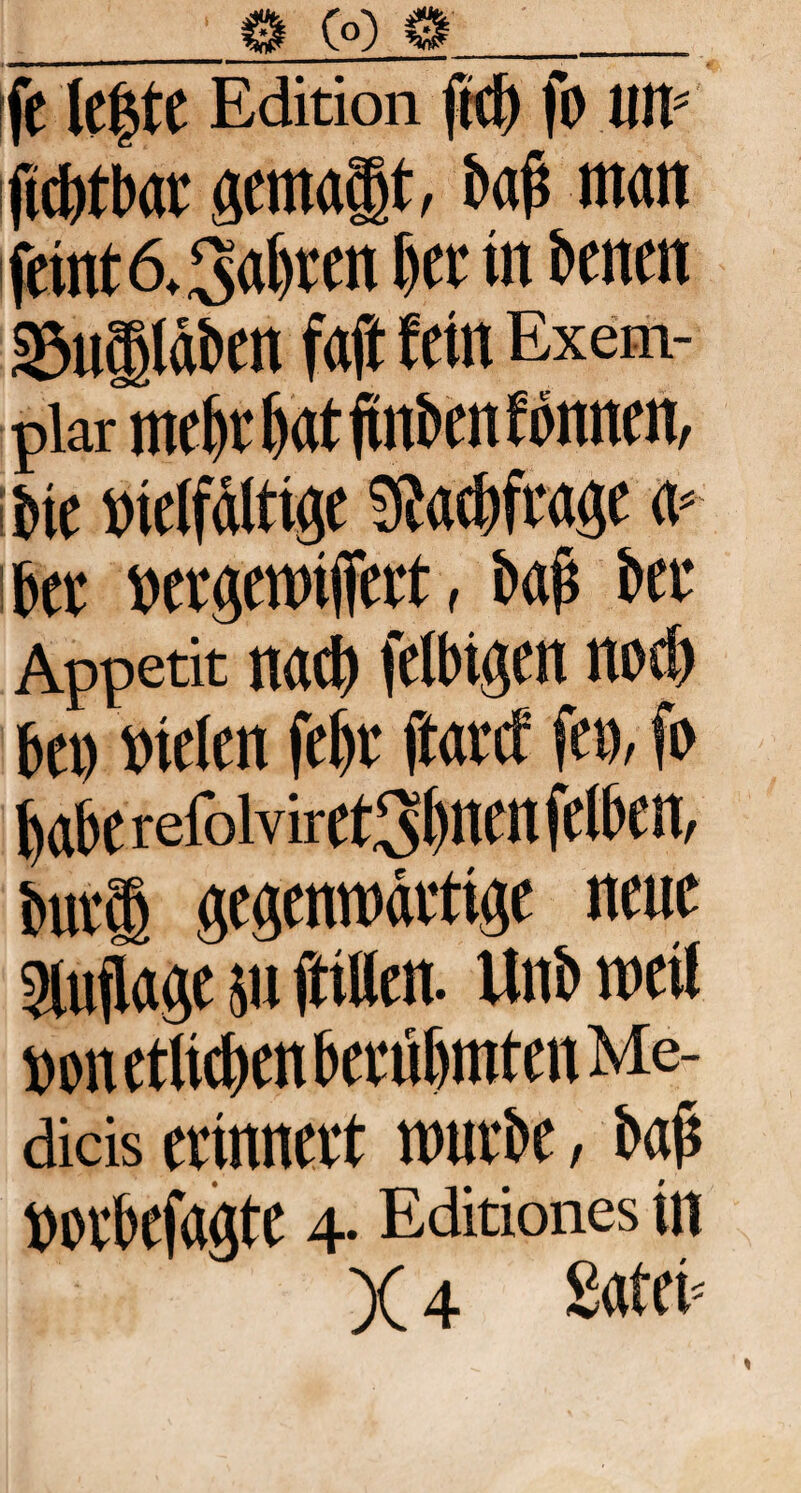 (o)
se letzte Edition sich so un⸗
sichtbar gemacht, daß man
seint 6. Jahren her in denen
Buchläden fast kein Exem-
plar mehr hat finden können,
die vielfältige Nachfrage a⸗
ber vergewissert, daß der
Appetit nach selbigen noch
bey vielen sehr starck sey, so
habe resolviret Ihnen selben,
durch gegenwärtige neue
Auflage zu stillen. Und weil
von etlichen berühmten Me-
dicis erinnert wurde, daß
vorbesagte 4. Editiones in
)( 4 Latei⸗